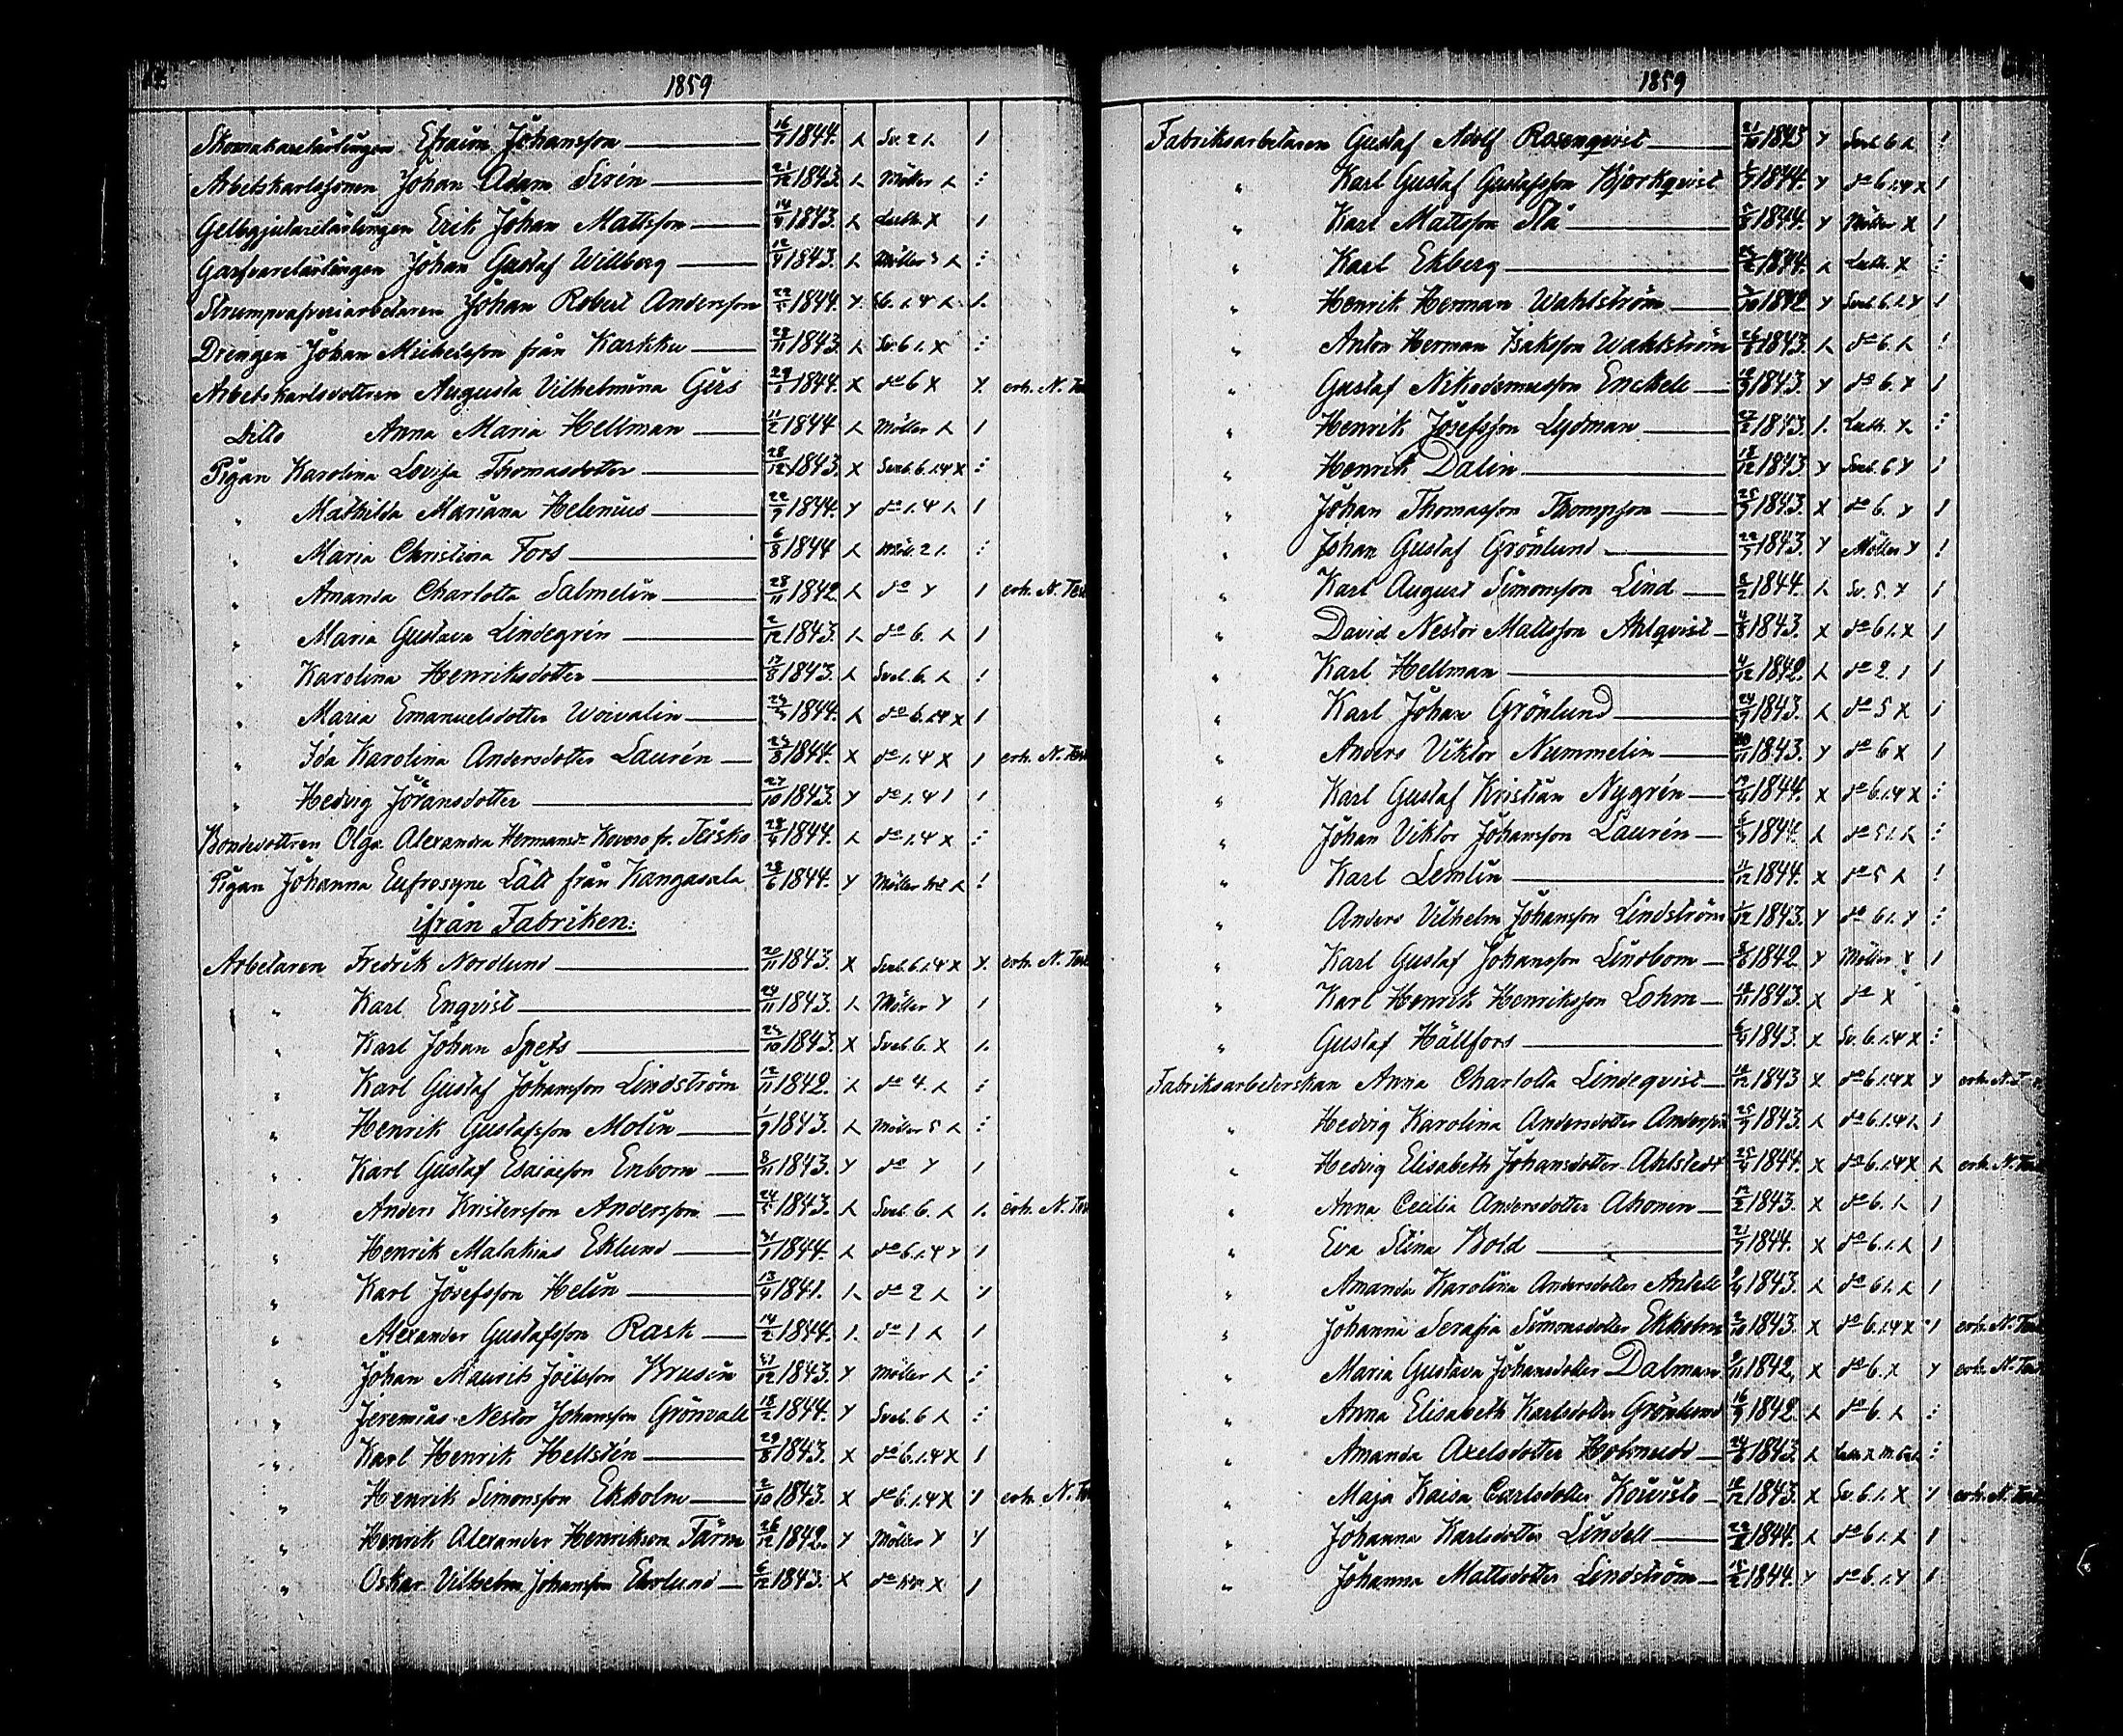 1859
Skomakarelärlingen Efraim Johansson 16/7 1844.
Arbetskarlssonen Johan Adam Sirén 21/12 1843. Möller
Gelbgjutarelärlingen Erik Johan Mattsson 14/9 1843. Luth. X
Garfvarelärlingen Johan Gustaf Willberg 12/9 1843. Möller
Johan Robert Andersson 1844.
Drengen Johan Michelsson från Karkku 23/11 1843.
Arbetskarlsdottren Augusta Vilhelmina Girs 1844. X do 6 X erh. N. Te
Ditto Anna Maria Hellman 11/2 1844 Möller
Pigan Karolina Lovisa Thomasdotter 28/12 1843. X Sveb. 6.1.4 X
" Mathilda Mariana Helenius 22/7 1844. do 1.4
" Maria Christina Fors 6/8 1844
" Amanda Charlotta Salmelin 28/11 1842 do erh. N. Test
" Maria Gustava Lindegrén 2/12 1843. do 6.
" Karolina Henriksdotter 17/8 1843. Sveb. 6.
" Maria Emanuelsdotter Woivalin 1844. do 6.1.4 X
" Ida Karolina Andersdotter Laurén 1844. X do 1.4 X erh. N. Test
" Hedvig Jöransdotter 27/10 1843. do 1.4
Bondedottren Olga Alexandra Hermansdr Kovero fr. Teisko 28/4 1844. do 1.4 X
Pigan Johanna Eufrosyne Lält från Kangasala 28/6 1844. Möller
ifrån Fabriken:
Arbetaren Fredrik Nordlund 20/11 1843. X Sveb. 6.1.4 X erh. N. Test
" Karl Enqvist 24/11 1843. Möller
" Karl Johan Spets 25/10 1843. X Sveb. 6. X
" Karl Gustaf Johansson Lindström 12/11 1842. do 4.
" Henrik Gustafsson Molin 1/9 1843. Möller 5
" Karl Gustaf Esaiasson Enbom 8/11 1843. do
" Anders Kristersson Andersson 1843. Sveb. 6. erh. N. Tes
" Henrik Malakias Eklund 31/1 1844. do 6.1.4
" Karl Josefsson Helin 13/4 1841. do 2
" Alexander Gustafsson Rask 14/2 1844. do 1
" Johan Maurits Joelsson Krusén 1843. Möller
" Jeremias Nestor Johansson Grönvall 18/2 1844. Sveb. 6
" Karl Henrik Hellstén 29/8 1843. X do 6.1.4 X
" Henrik Simonsson Ekholm 2/10 1843. X do 6.1.4 X erh. N. Te
" Henrik Alexander Henrikson Färm 26/12 1842. Möller
" Oskar Vilhelm Johansson Ekrlund 6/12 1843. X do X
1859
Fabriksarbetaren Gustaf Adolf Rosenqvist 21/10 1843 Sveb. 6
" Karl Gustaf Gustafsson Björkqvist 1844. do 6.1.4 X
" Karl Mattsson Slå 5/8 1844. Möller X
" Karl Ekberg 1844. Luth. X
" Henrik Herman Wahlström 1842 Sveb. 6.1
" Anton Herman Isaksson Wahlström 1843. do 6.
" Gustaf Nikodemusson Enckell 1843. do 6.
" Henrik Josefsson Lydman 1843. Luth.
" Henrik Dalin 18/12 1843 Sveb. 6
" Johan Thomasson Thompson 25/7 1843. X do 6.
" Johan Gustaf Grönlund 22/7 1843. Möller
" Karl August Simonsson Lind 8/2 1844. Sv. 5.
" David Nestor Mattsson Ahlqvist 4/8 1843. X do 6 1. X
" Karl Hellman 4/12 1842. do 2.
" Karl Johan Grönlund 1843. do 5 X
" Anders Viktor Nummelin 1843. do 6 X
" Karl Gustaf Kristian Nygrén 17/4 1844. X do 6.1.4 X
" Johan Viktor Johansson Laurén 1844. do 5 1.
" Karl Lemlin 11/12 1844. X do 5
" Anders Vilhelm Johansson Lindström 1/12 1843. do 6 1.
" Karl Gustaf Johansson Lindbom 1842 Möller
" Karl Henrik Henriksson Lohm 18/11 1843. X do X
" Gustaf Hällfors 1843. X Sv. 6.1.4 X
Fabriksarbeterskan Anna Charlotta Lindeqvist 18/12 1843 X do 6.1.4 X erh. N. T
" Hedvig Karolina Andersdotter 25/9 1843. do 6.1.4
" Hedvig Elisabeth Johansdotter Ahlstedt 25/4 1844. X do 6.1.4 X erh. N. Test
" Anna Cecilia Andersdotter Ahonen 1843. X do 6.
" Eva Stina Bold 21/7 1844. X do 6.1.
" Amanda Karolina Andersdotter Antell 1843. do 6 1.
" Johanna Serafia Simonsdotter Ekholm 2/10 1843. X do 6.1.4 X erh. N. Test
" Maria Gustava Johansdotter Dalman 9/11 1842. X do 6. X erh. N. Test
" Anna Elisabeth Karlsdotter Grönlund 16/9 1842 do 6.
" Amanda Axelsdotter 1843.
" Maja Kaisa Carlsdotter Kouvisto 1843. X Sv. 6.1. X erh. N. Test
" Johanna Karlsdotter Lindell 1844. do 6 1.
" Johanna Mattsdotter Lindström 15/2 1844. do 6.1.